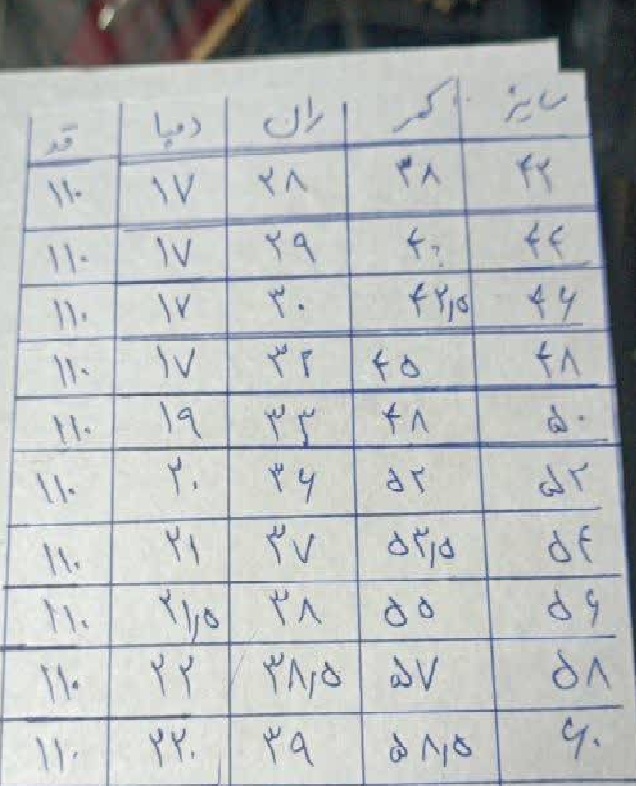 سایز کمر ران دمپا قد
۴۲ ۳۸ ۲۸ ۱۷ ۱۱۰
۴۴ ۴۰ ۲۹ ۱۷ ۱۱۰
۴۶ ۴۲,۵ ۳۰ ۱۷ ۱۱۰
۴۸ ۴۵ ۳۲ ۱۷ ۱۱۰
۵۰ ۴۸ ۳۳ ۱۹ ۱۱۰
۵۲ ۵۲ ۳۶ ۲۰ ۱۱۰
۵۴ ۵۳,۵ ۳۷ ۲۱ ۱۱۰
۵۶ ۵۵ ۳۸ ۲۱,۵ ۱۱۰
۵۸ ۵۷ ۳۸,۵ ۲۲ ۱۱۰
۶۰ ۵۸,۵ ۳۹ ۲۲ ۱۱۰